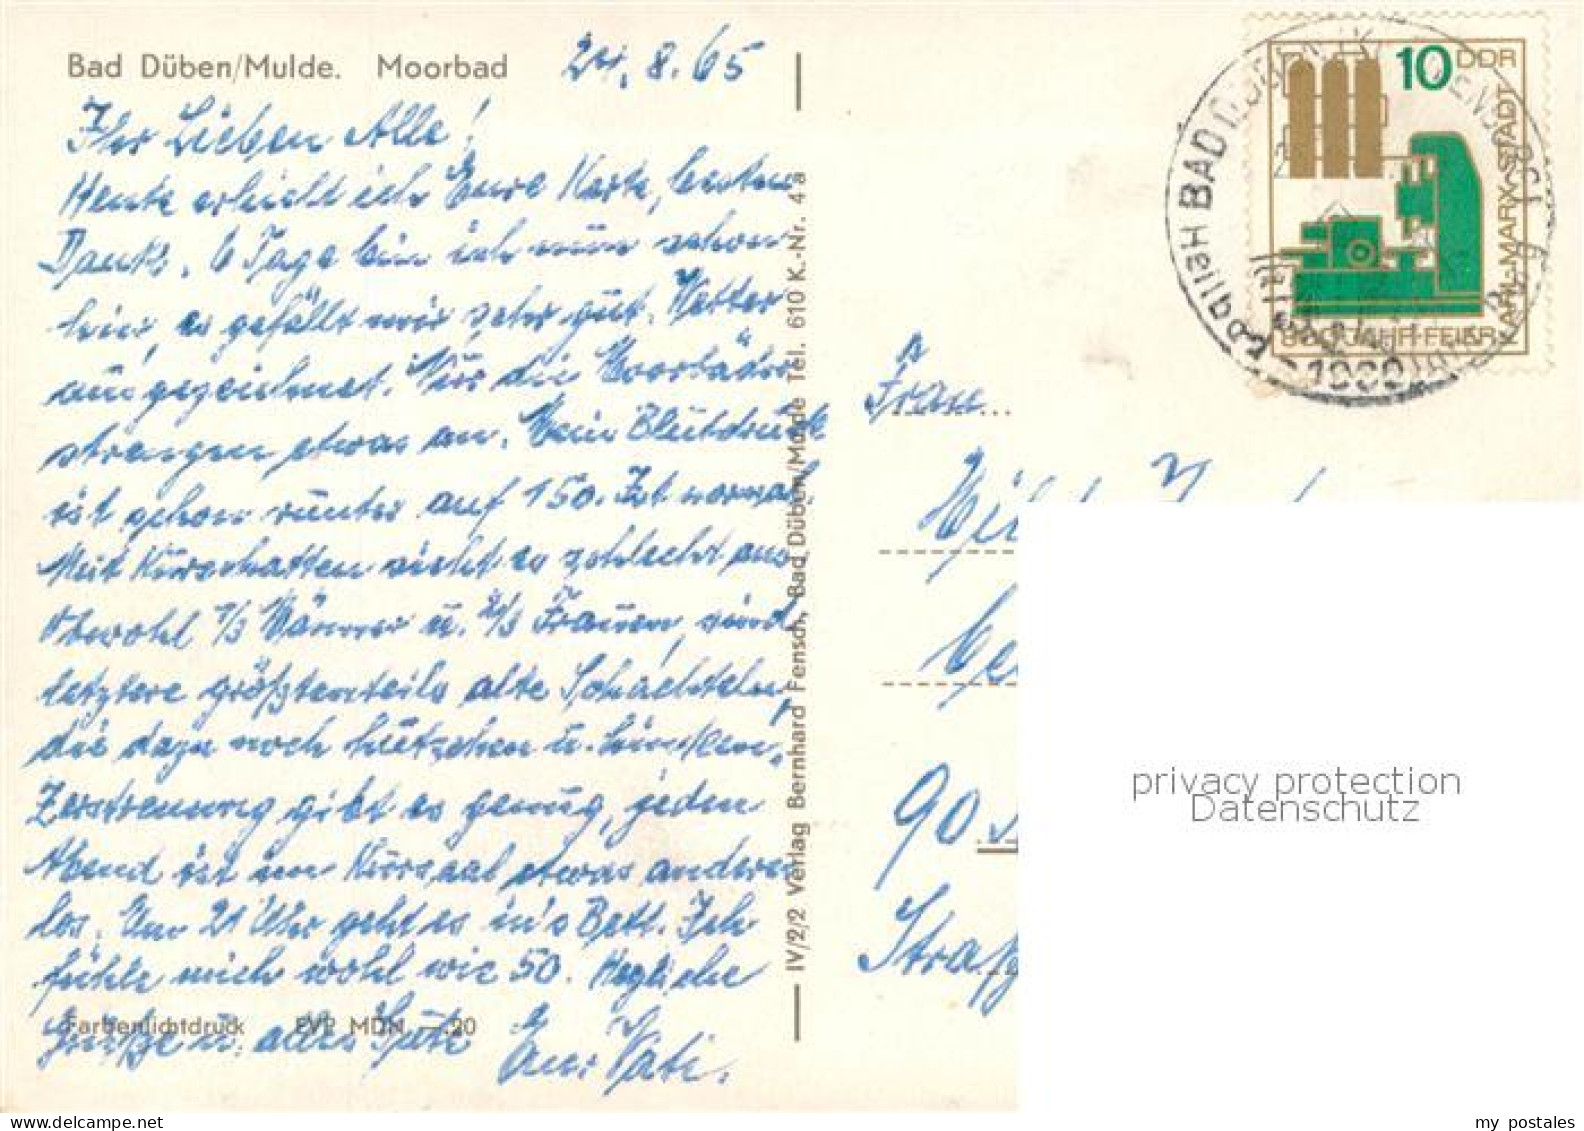 Bad Düben/Mulde. Moorbad
24. 8. 65
Ihr Lieben Alle!
Heute erhielt ich Eure Karte, besten
Dank. 6 Tage bin ich nun schon
hier, es gefällt mir sehr gut. Wetter
ausgezeichnet. Nur die Moorbäder
strengen etwas an. Mein Blutdruck
ist schon runter auf 150. Ist normal.
Mit Kurschatten sieht es schlecht aus
Obwohl 1/3 Männer u. 2/3 Frauen, sind
letztere größtenteils alte Schachteln,
die dazu noch hinken.
Zerstreuung gibt es genug, jeden
Abend ist im Kursaal etwas anderes
los. Um 21 Uhr geht es in's Bett. Ich
fühle mich wohl wie 50. Herzliche
Grüße u. alles Gute Eur Vati.
Farbenlichtdruck EVP MDN —.20
IV/2/2 Verlag Bernhard Fensch, Bad Düben/Mulde Tel. 610 K.-Nr. 4 a
10 DDR
800 JAHRFEIER KARL-MARX-STADT
BAD
heilt
Frau
90
Straß
privacy protection
Datenschutz
my postales